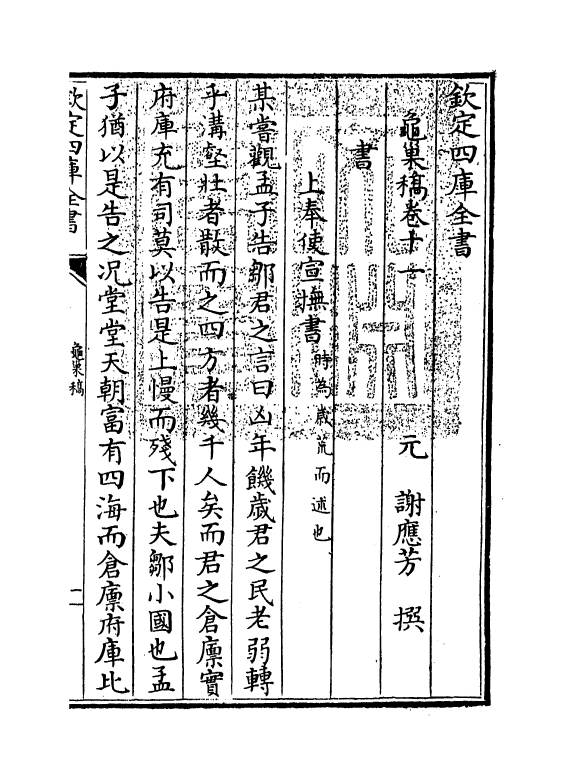 欽定四庫全書
龜巢稿卷十一 元 謝應芳 撰
書
上奉使宣撫書時為歲荒而述也
某嘗觀孟子告鄒君之言曰凶年饑歲君之民老弱轉
乎溝壑壯者散而之四方者幾千人矣而君之倉廩實
府庫充有司莫以告是上慢而殘下也夫鄒小國也孟
子猶以是告之况堂堂天朝富有四海而倉廩府庫比
欽定四庫全書
龜巢稿